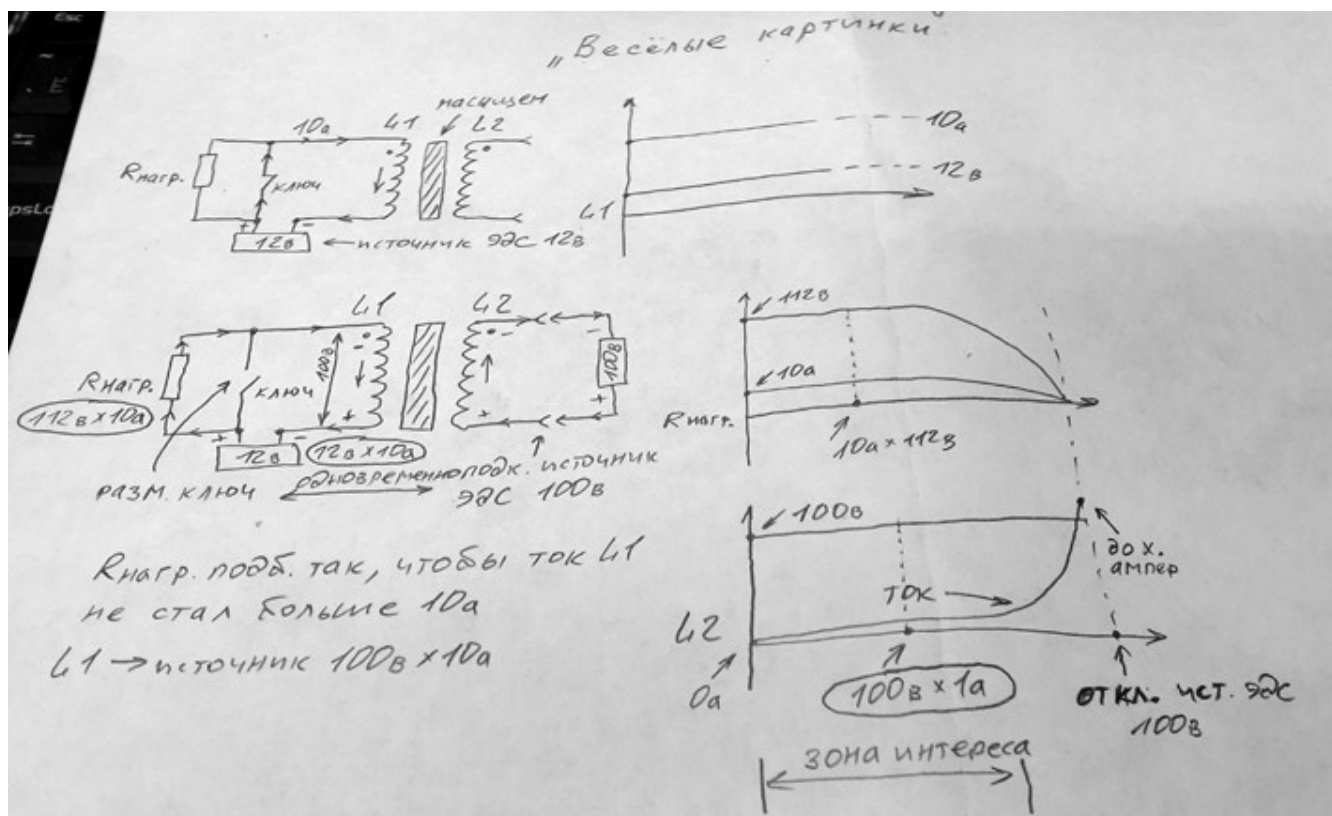 „Весёлые картинки"
насыщен
10а
L1
L2
Rнагр.
ключ
+
-
12в
источник ЭДС 12в
10а
12в
L1
L1
L2
Rнагр.
112в х 10а
ключ
100в
-
+
-
+
-
+
100в
+
-
12в
12в х 10а
разм. ключ
одновременно подк. источник
ЭДС 100в
112в
10а
Rнагр.
10а х 112в
Rнагр. подб. так, чтобы ток L1
не стал больше 10а
L1 → источник 100в х 10а
100в
до х.
ампер
ток
L2
0а
100в х 1а
откл. ист. ЭДС
100в
зона интереса
Esc